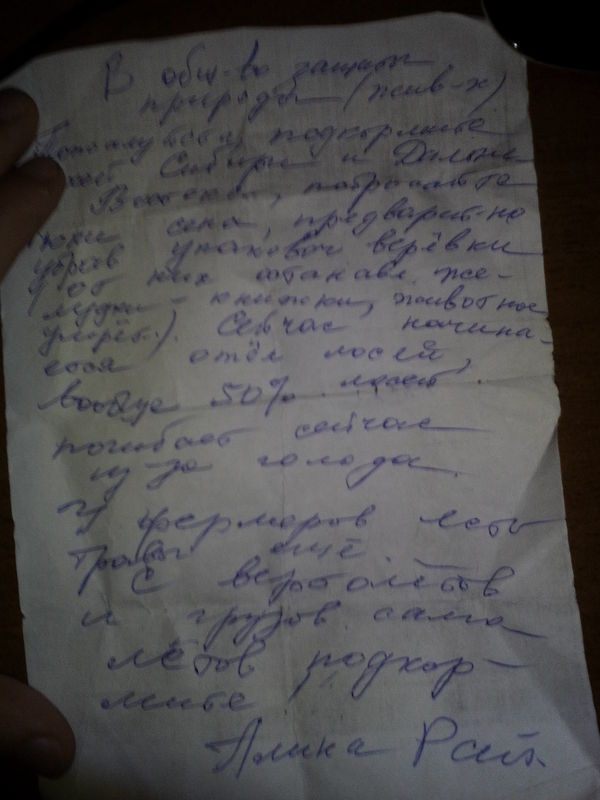 В общ-во защиты
природы (жив-х)
Пожалуйста, подкормите
лосей Сибири и Дальне
Востока, потросайте
тюки сена, предварит-но
убрав упаковоч верёвки
от них останавл. же-
лудки - книжки, животное
умрёт.). Сейчас начина-
ется отёл лосей,
вообще 50% лосей
погибает сейчас
из-за голода.
У фермеров есть
травы ещё
С вертолётов
и грузов само-
лётов подкор-
мите
Алина Рай